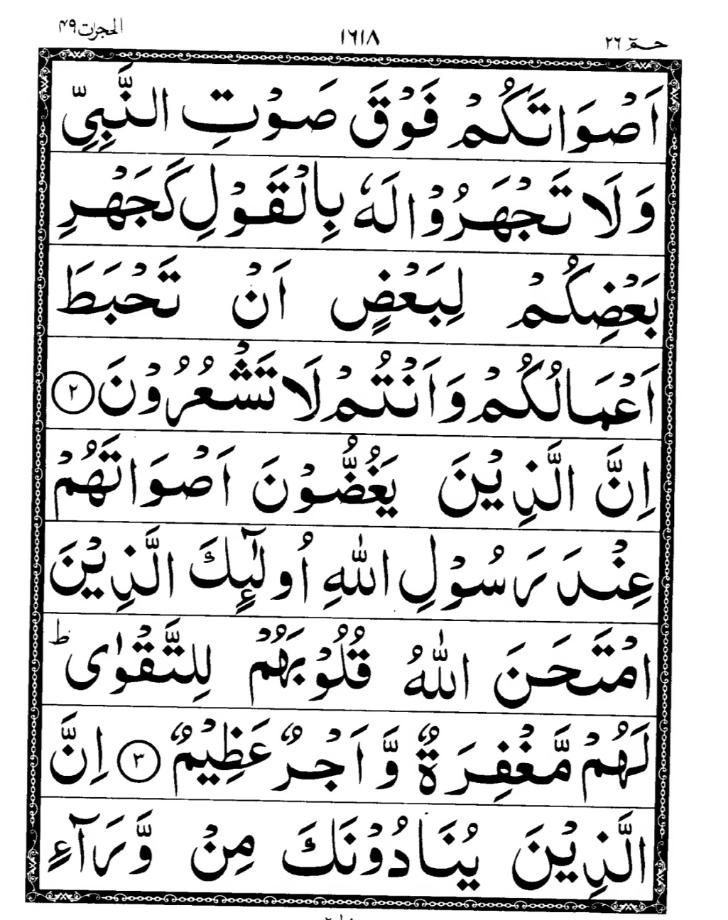 الحجرت ٤٩ ١٦١٨ حٰمٓ ٢٦
اَصْوَاتَكُمْ فَوْقَ صَوْتِ النَّبِيِّ
وَلَا تَجْهَرُوْا لَهٗ بِالْقَوْلِ كَجَهْرِ
بَعْضِكُمْ لِبَعْضٍ اَنْ تَحْبَطَ
اَعْمَالُكُمْ وَاَنْتُمْ لَا تَشْعُرُوْنَ ﴿٢﴾
اِنَّ الَّذِيْنَ يَغُضُّوْنَ اَصْوَاتَهُمْ
عِنْدَ رَسُوْلِ اللّٰهِ اُولٰٓئِكَ الَّذِيْنَ
امْتَحَنَ اللّٰهُ قُلُوْبَهُمْ لِلتَّقْوٰى ؕ
لَهُمْ مَّغْفِرَةٌ وَّاَجْرٌ عَظِيْمٌ ﴿٣﴾ اِنَّ
الَّذِيْنَ يُنَادُوْنَكَ مِنْ وَّرَآءِ